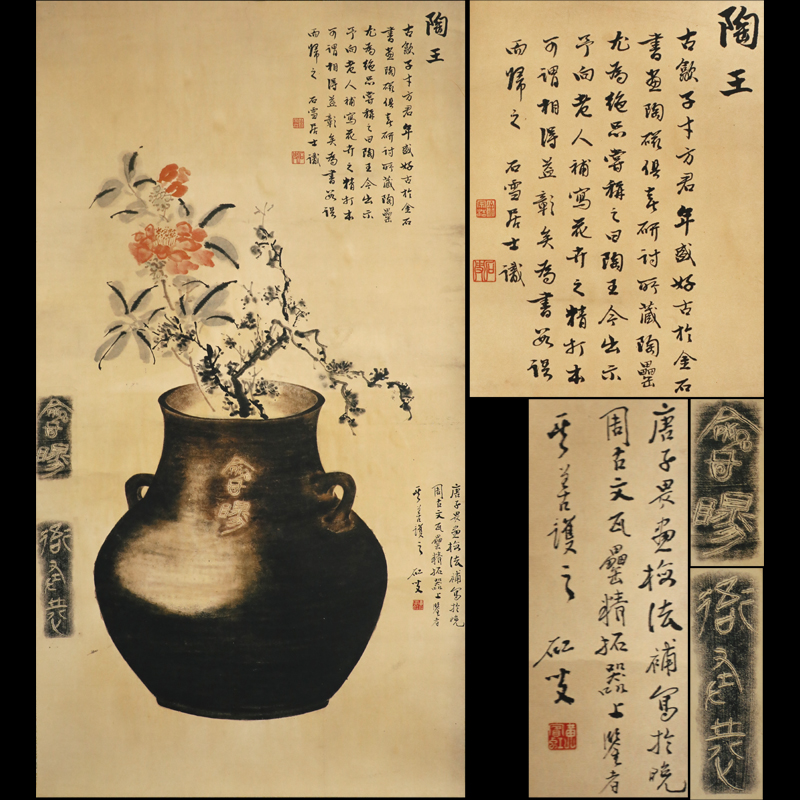 陶王
古歙子方君年盛好古於金石
書畫陶磁俱喜研討所藏陶罍
尤為絶品嘗稱之曰陶王今出示
予向老人補寫花卉之精打本
可謂相得益彰矣為書
而歸之 石雪居士識
唐子畏畫梅法補寫於晚
周古文瓦罍精拓器上鑒者
其善護之
陶王
古歙子方君年盛好古於金石
書畫陶磁俱喜研討所藏陶罍
尤為絶品嘗稱之曰陶王今出示
予向老人補寫花卉之精打本
可謂相得益彰矣為書
而歸之 石雪居士識
唐子畏畫梅法補寫於晚
周古文瓦罍精拓器上鑒者
其善護之